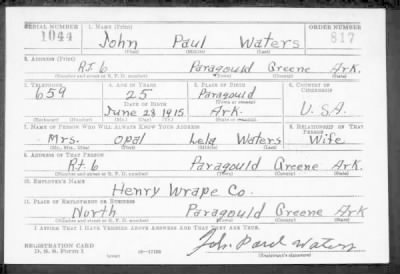 SERIAL NUMBER 1. NAME (Print) ORDER NUMBER
1044 John Paul Waters 817
(First) (Middle) (Last)
2. ADDRESS (Print)
Rt 6 Paragould Greene Ark.
(Number and street or R. F. D. number) (Town) (County) (State)
3. TELEPHONE 4. AGE IN YEARS 5. PLACE OF BIRTH 6. COUNTRY OF CITIZENSHIP
659 25 Paragould
DATE OF BIRTH (Town or county)
June 28 1915 Ark. U.S.A.
(Mo.) (Day) (Yr.) (State or country)
7. NAME OF PERSON WHO WILL ALWAYS KNOW YOUR ADDRESS 8. RELATIONSHIP OF THAT PERSON
Mrs. Opal Lela Waters Wife
(Mr., Mrs., Miss) (First) (Middle) (Last)
9. ADDRESS OF THAT PERSON
Rt 6 Paragould Greene Ark.
(Number and street or R. F. D. number) (Town) (County) (State)
10. EMPLOYER'S NAME
Henry Wrape Co.
11. PLACE OF EMPLOYMENT OR BUSINESS
North Paragould Greene Ark
(Number and street or R. F. D. number) (Town) (County) (State)
I AFFIRM THAT I HAVE VERIFIED ABOVE ANSWERS AND THAT THEY ARE TRUE.
REGISTRATION CARD
D. S. S. Form 1 John Paul Waters
(over) (Registrant's signature)